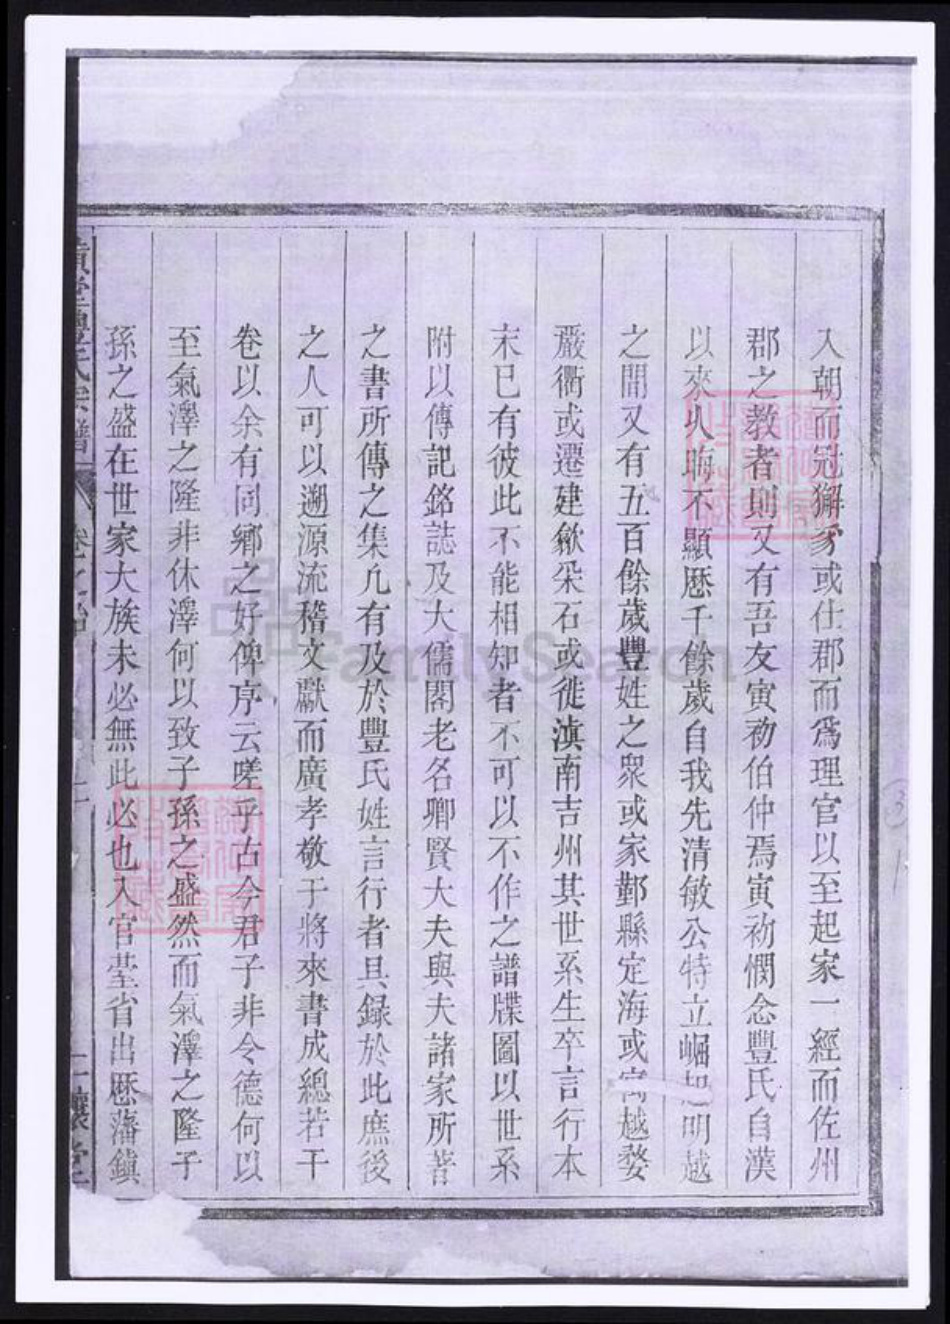 入朝而冠獬豸或仕郡而爲理官以至起家一經而佐州
郡之教者則又有吾友寅初伯仲焉寅初憫念豐氏自漢
以來以晦不顯歷千餘歲自我先清敏公特立崛起明越
之間又有五百餘歲豐姓之眾或家鄞縣定海或寓越婺
嚴衢或遷建歙采石或徙滇南吉州其世系生卒言行本
末已有彼此不能相知者不可以不作之譜牒圖以世系
附以傳記銘誌及大儒閣老名卿賢大夫與夫諸家所著
之書所傳之集凡有及於豐氏姓言行者具録於此庶後
之人可以遡源流稽文獻而廣孝敬于將來書成總若干
卷以余有同鄉之好俾序云嗟乎古今君子非令德何以
至氣澤之隆非休澤何以致子孫之盛然而氣澤之隆子
孫之盛在世家大族未必無此必也入官臺省出歷藩鎮
豐氏宗譜 卷之
FamilySearch